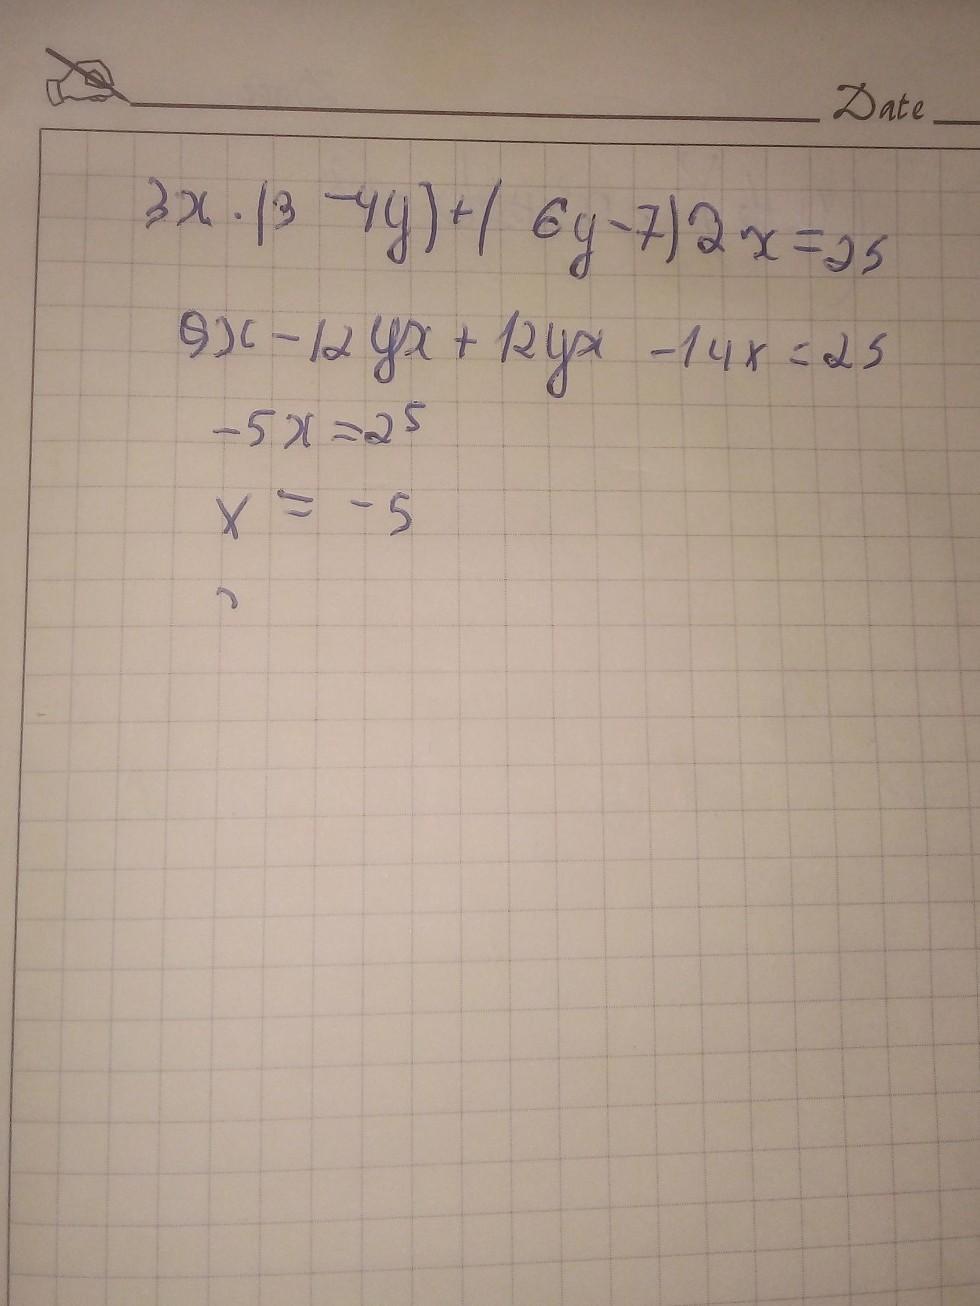 Date
3x · (3 -4y) + ( 6y - 7) 2x = 25
9x - 12yx + 12yx - 14x = 25
-5x = 25
x = -5